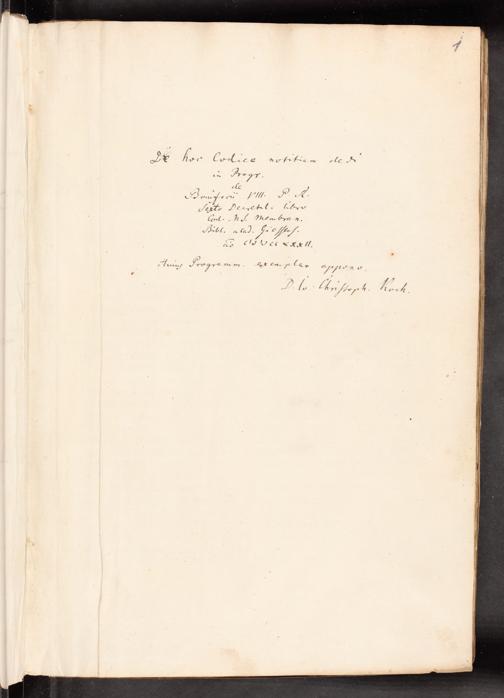 1
De hoc Codice notitiam dedi
in Progr.
de
Bonifacii VIII. P. R.
Sexto Decretal. libro
Cod. MS. membran.
Bibl. acad. Giessens.
ao
cujus Programm. exemplar appono.
D. Io. Christoph. Koch.